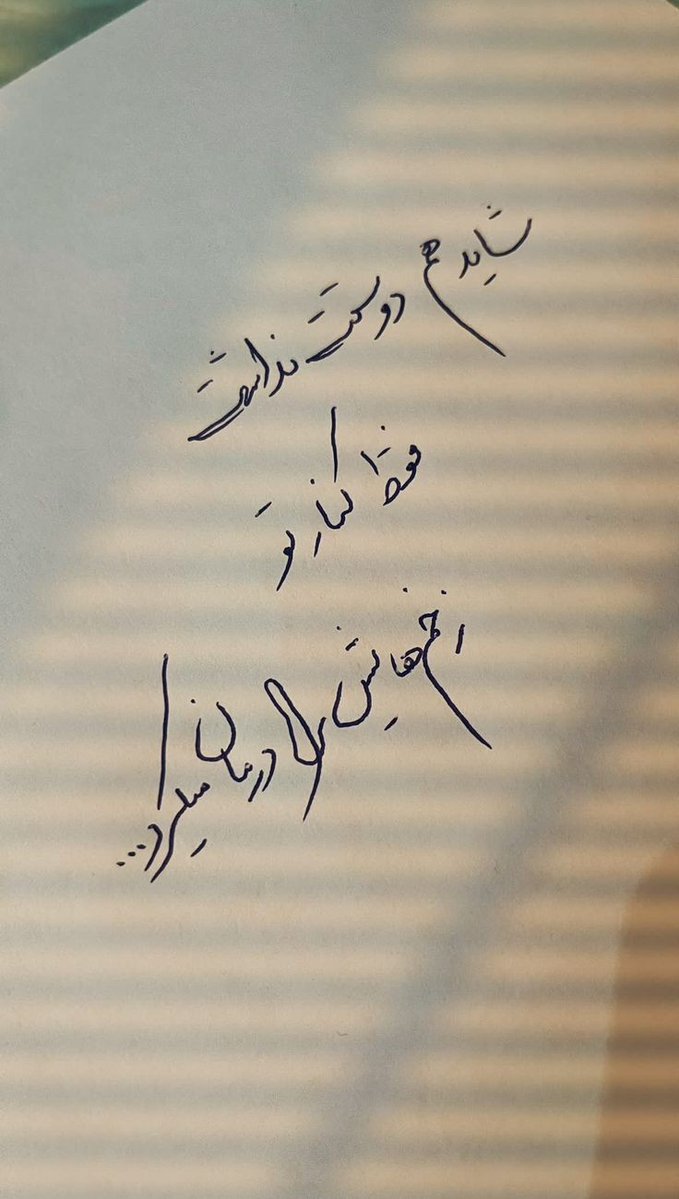 شاید هم دوستت نداشت
فقط کنار تو
زخم‌هایش را درمان میکرد...